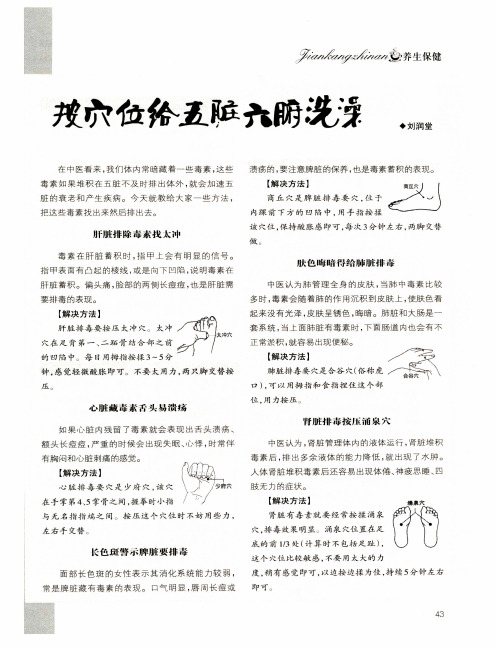 Jiankangzhinan 养生保健
按穴位给五脏六腑洗澡
◆刘润堂
在中医看来,我们体内常暗藏着一些毒素,这些
毒素如果堆积在五脏不及时排出体外,就会加速五
脏的衰老和产生疾病。今天就教给大家一些方法,
把这些毒素找出来然后排出去。
肝脏排除毒素找太冲
毒素在肝脏蓄积时,指甲上会有明显的信号。
指甲表面有凸起的棱线,或是向下凹陷,说明毒素在
肝脏蓄积。偏头痛,脸部的两侧长痘痘,也是肝脏需
要排毒的表现。
【解决方法】
肝脏排毒要按压太冲穴。太冲
穴在足背第一、二跖骨结合部之前
的凹陷中。每日用拇指按揉3~5分
钟,感觉轻微酸胀即可。不要太用力,两只脚交替按
压。
太冲穴
心脏藏毒素舌头易溃疡
如果心脏内残留了毒素就会表现出舌头溃疡、
额头长痘痘,严重的时候会出现失眠、心悸,时常伴
有胸闷和心脏刺痛的感觉。
【解决方法】
心脏排毒要穴是少府穴,该穴
在手掌第4、5掌骨之间,握拳时小指
与无名指指端之间。按压这个穴位时不妨用些力,
左右手交替。
少府穴
长色斑警示脾脏要排毒
面部长色斑的女性表示其消化系统能力较弱,
常是脾脏藏有毒素的表现。口气明显,唇周长痘或
溃疡的,要注意脾脏的保养,也是毒素蓄积的表现。
【解决方法】
商丘穴是脾脏排毒要穴,位于
内踝前下方的凹陷中,用手指按揉
该穴位,保持酸胀感即可,每次3分钟左右,两脚交替
做。
商丘穴
肤色晦暗得给肺脏排毒
中医认为肺管理全身的皮肤,当肺中毒素比较
多时,毒素会随着肺的作用沉积到皮肤上,使肤色看
起来没有光泽,皮肤呈锈色,晦暗。肺脏和大肠是一
套系统,当上面肺脏有毒素时,下面肠道内也会有不
正常淤积,就容易出现便秘。
【解决方法】
肺脏排毒要穴是合谷穴(俗称虎
口),可以用拇指和食指捏住这个部
位,用力按压。
合谷穴
肾脏排毒按压涌泉穴
中医认为,肾脏管理体内的液体运行,肾脏堆积
毒素后,排出多余液体的能力降低,就出现了水肿。
人体肾脏堆积毒素后还容易出现体倦、神疲思睡、四
肢无力的症状。
【解决方法】
肾脏有毒素就要经常按揉涌泉
穴,排毒效果明显。涌泉穴位置在足
底的前1/3处(计算时不包括足趾),
这个穴位比较敏感,不要用太大的力
度,稍有感觉即可,以边按边揉为佳,持续5分钟左右
即可。
涌泉穴
43